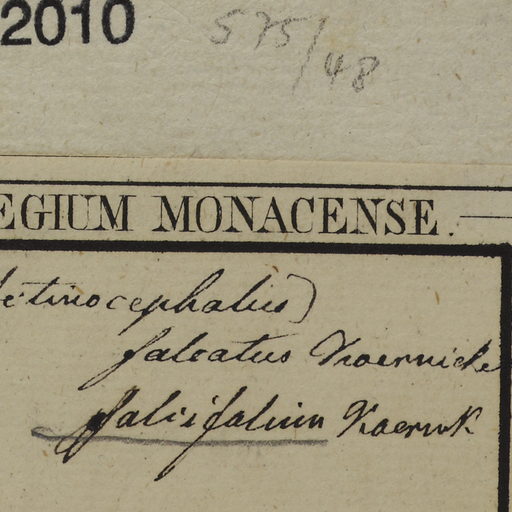 2010
575/48
EGIUM MONACENSE.
etinocephalus)
falcatus Koernicke
falcifolium Koernk